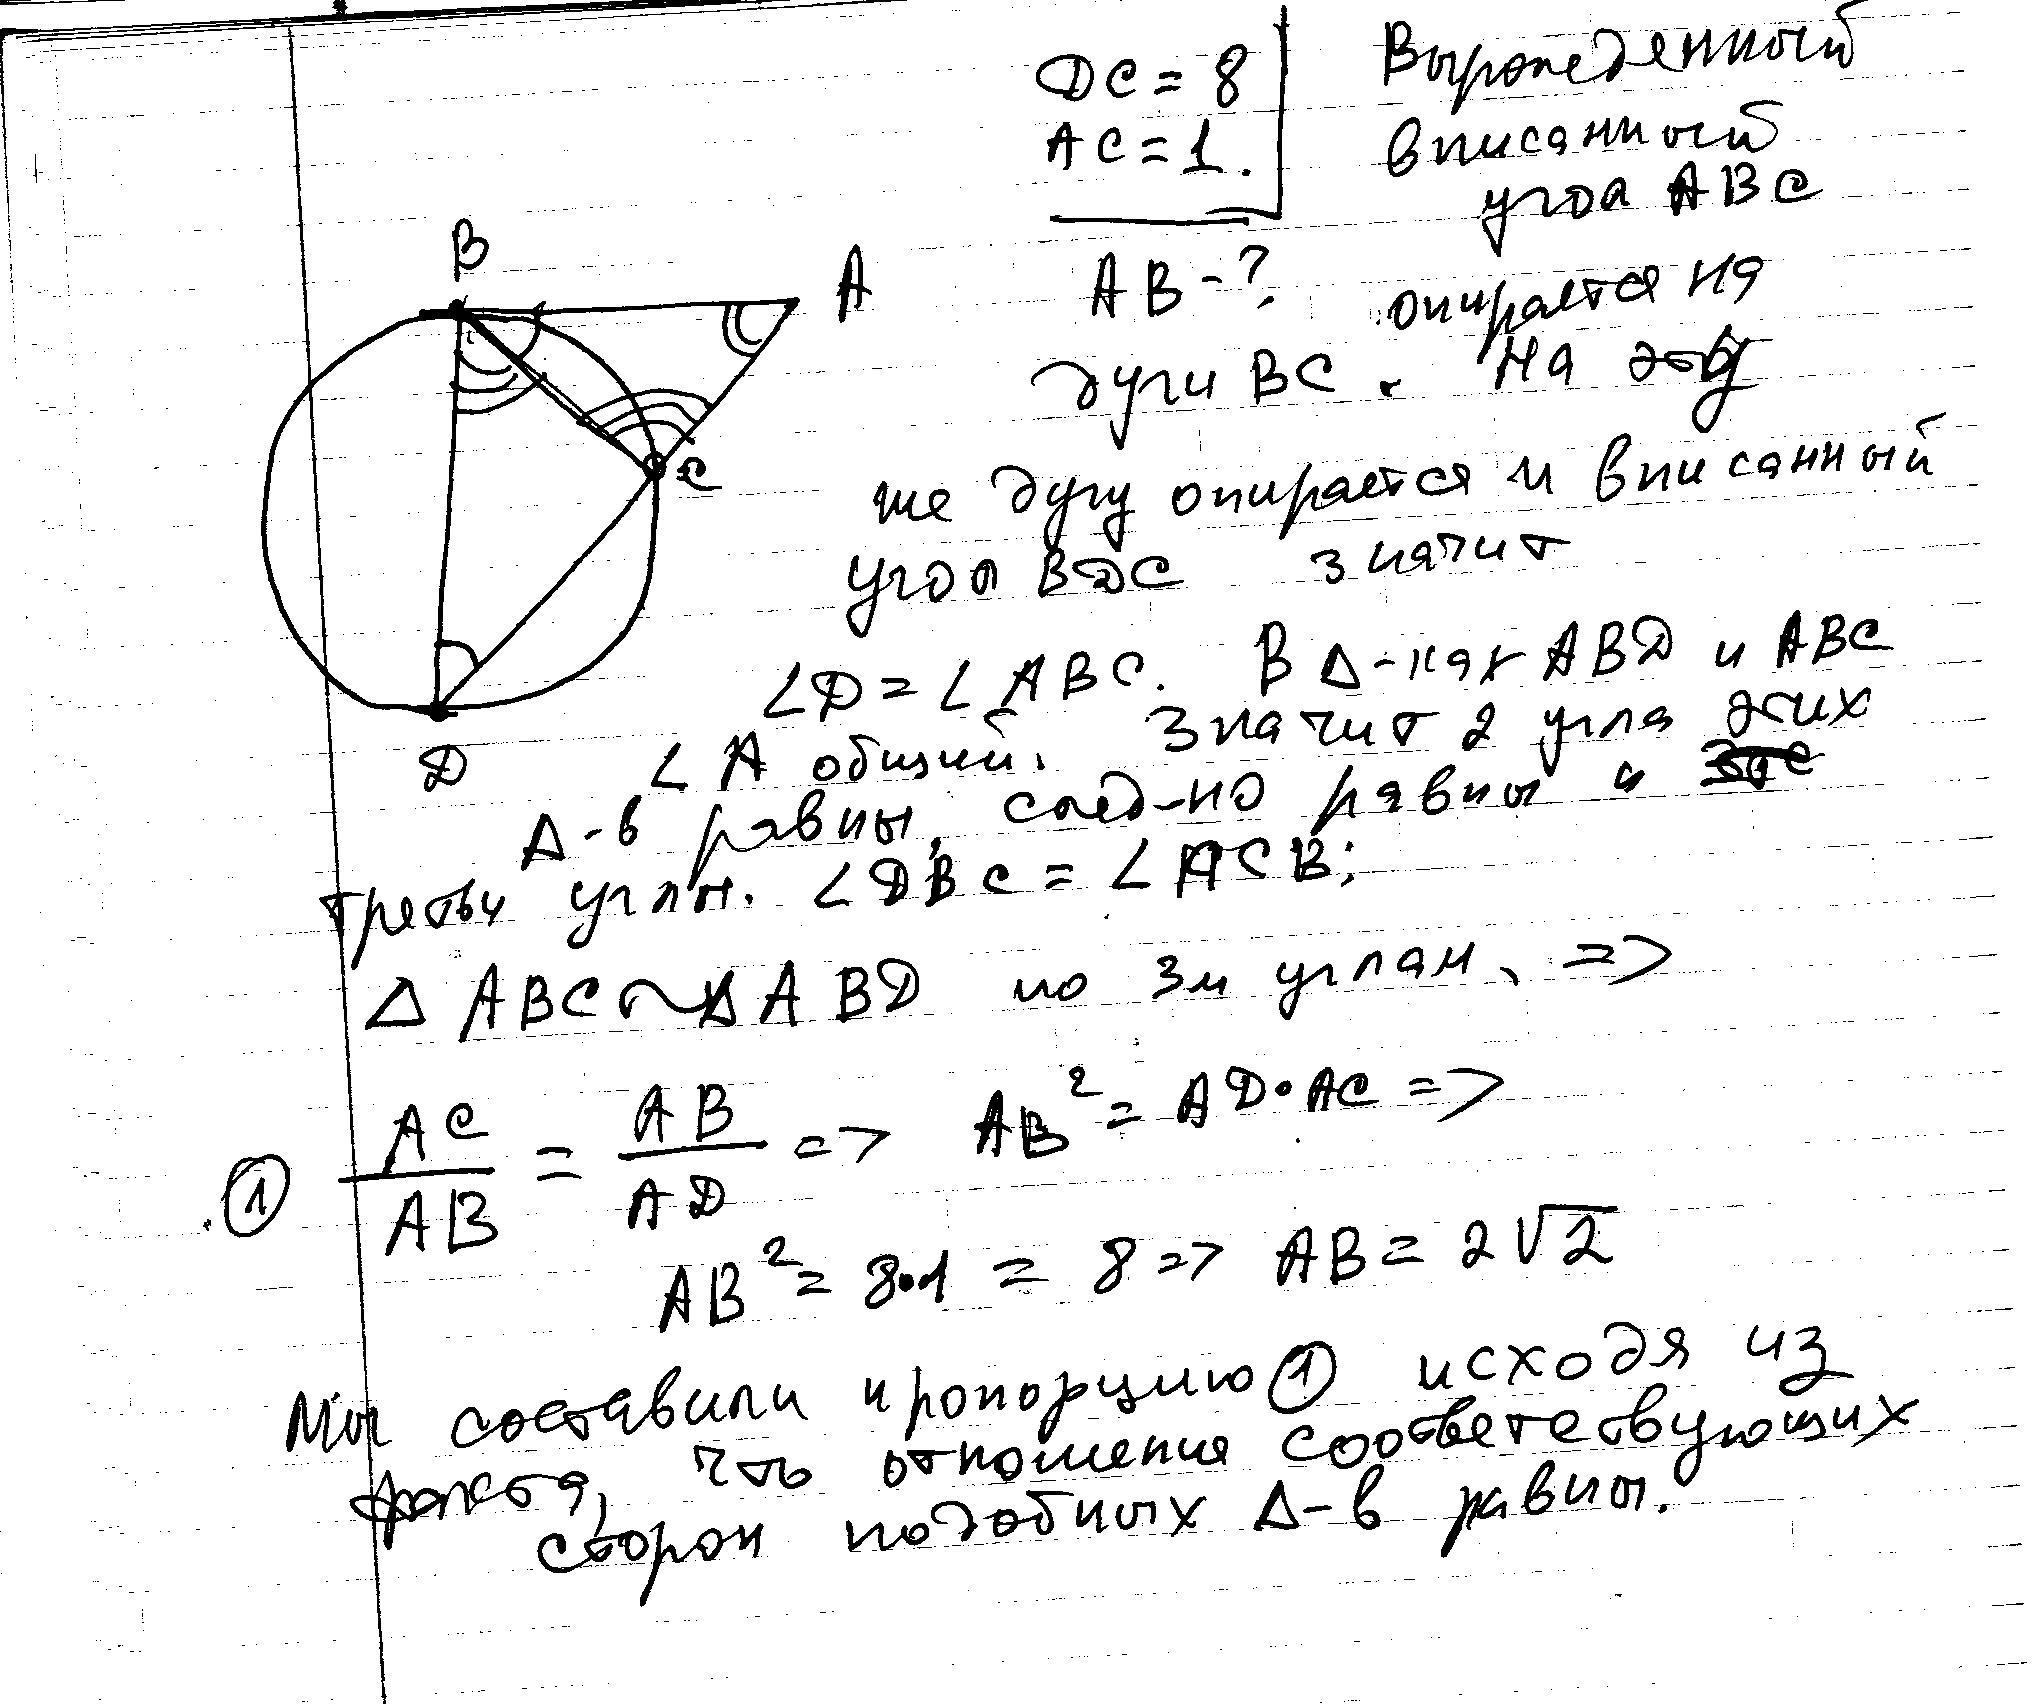 DC = 8
AC = 1.
AB - ?
Вырожденный
вписанный
угол ABC
опирается на
дуги BC. На эту
же дугу опирается и вписанный
угол BDC значит
∠D = ∠ABC. В Δ-ках ABD и ABC
∠A общий. Значит 2 угла этих
Δ-в равны, след-но равны и
третьи углы. ∠DBC = ∠ACB;
Δ ABC ~ Δ ABD по 3м углам, =>
① AC/AB = AB/AD => AB² = AD·AC =>
AB² = 8·1 = 8 => AB = 2√2
Мы составили пропорцию ① исходя из
факта, что отношения соответствующих
сторон подобных Δ-в равны.
B
A
C
D